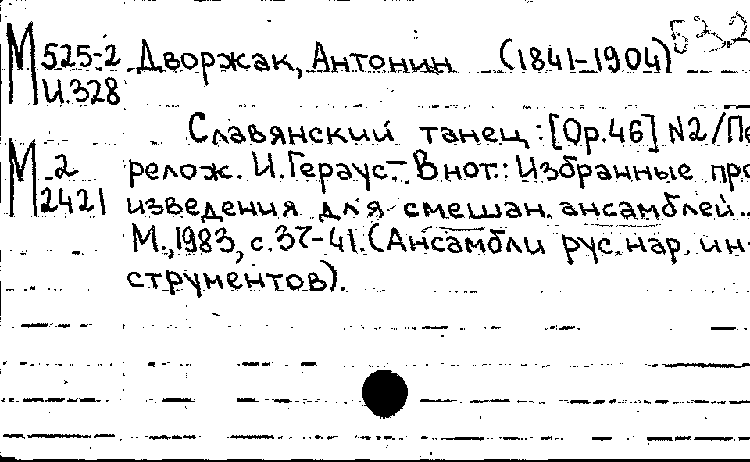 М 525-2 Дворжак, Антонин (1841-1904) 532
И.328
Славянский танец: [Op.46] N2/Пе
М 2 релож. И.Гераус.-. В нот.: Избранные про
2421 изведения для смешан. ансамблей..
М., 1983, с. 37-41. (Ансамбли рус. нар. ин-
струментов).